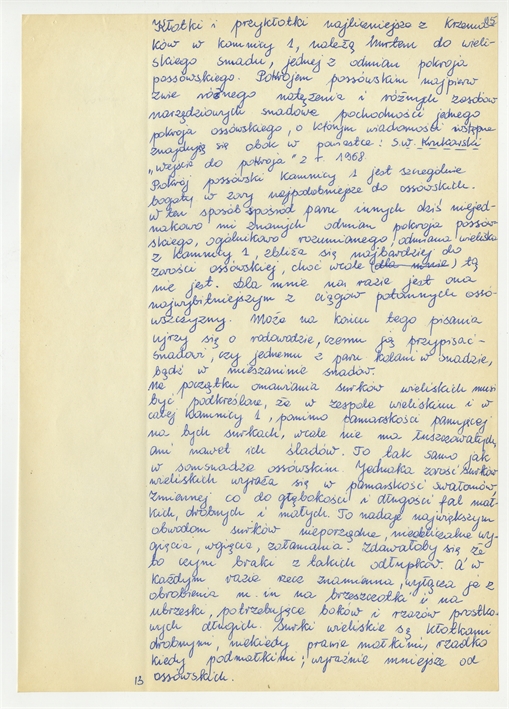 Kłotki i przykłotki najliczniejsze z Krzemion- 85
ków w kamnicy 1, należą hurtem do wieli-
skiego smadu, jednej z odmian pokroja
possówskiego. Pokrojem possówskim najpierw
zwie różnego natężenia i różnych zasobów
narzędziowych smadowe pochodności jednego
pokroja ossówskiego, o którym wiadomości wstępne
znajdują się obok w paristce: S.W. Krukowski
"Wejście do pokroja" z r. 1968.
Pokrój possówski kamnicy 1 jest szczególnie
bogaty w zory najpodobniejsze do ossówskich.
W ten sposób spośród paru innych dziś niejed-
nakowo mi znanych odmian pokroja possów-
skiego, ogólnikowo rozumianego, odmiana wieliska
z kamnicy 1, zbliża się najbardziej do
zorości ossówskiej, choć wcale (dla mnie) tą
nie jest. Dla mnie na razie jest ona
najwybitniejszym z ciągów potomnych ossó-
wszczyzny. Może na końcu tego pisania
ujrzy się o rodowodzie, czemu ją przypisać -
smadowi, czy jednemu z paru kolani w smadzie,
bądź w mieszaninie smadów.
Na początku omawiania surków wieliskich musi
być podkreślone, że w zespole wieliskim i w
całej kamnicy 1, pomimo pomarskości panującej
na tych surkach, wcale nie ma łuszczowatych,
ani nawet ich śladów. To tak samo jak
w somsmadzie ossówskim. Jednaka zorość surków
wieliskich wyraża się w pomarskości swałomów,
zmiennej co do głębokości i długości fal mał-
kich, drobnych i małych. To nadaje największym
obwodom surków nieporządne, nieobliczalne wy-
gięcia, wgięcia, załamania. Zdawałoby się że
to czyni braki z takich odłupków. A w
każdym razie rzecz znamienna, wyłącza je z
obrobienia m. in na brzeszczotki i na
ubrzeski, potrzebujące boków i rzazów prostko-
wych długich. Surki wieliskie są kłotkami
drobnymi, niekiedy prawie małkimi, rzadko
kiedy podmałkimi; wyraźnie mniejsze od
13 ossówskich.